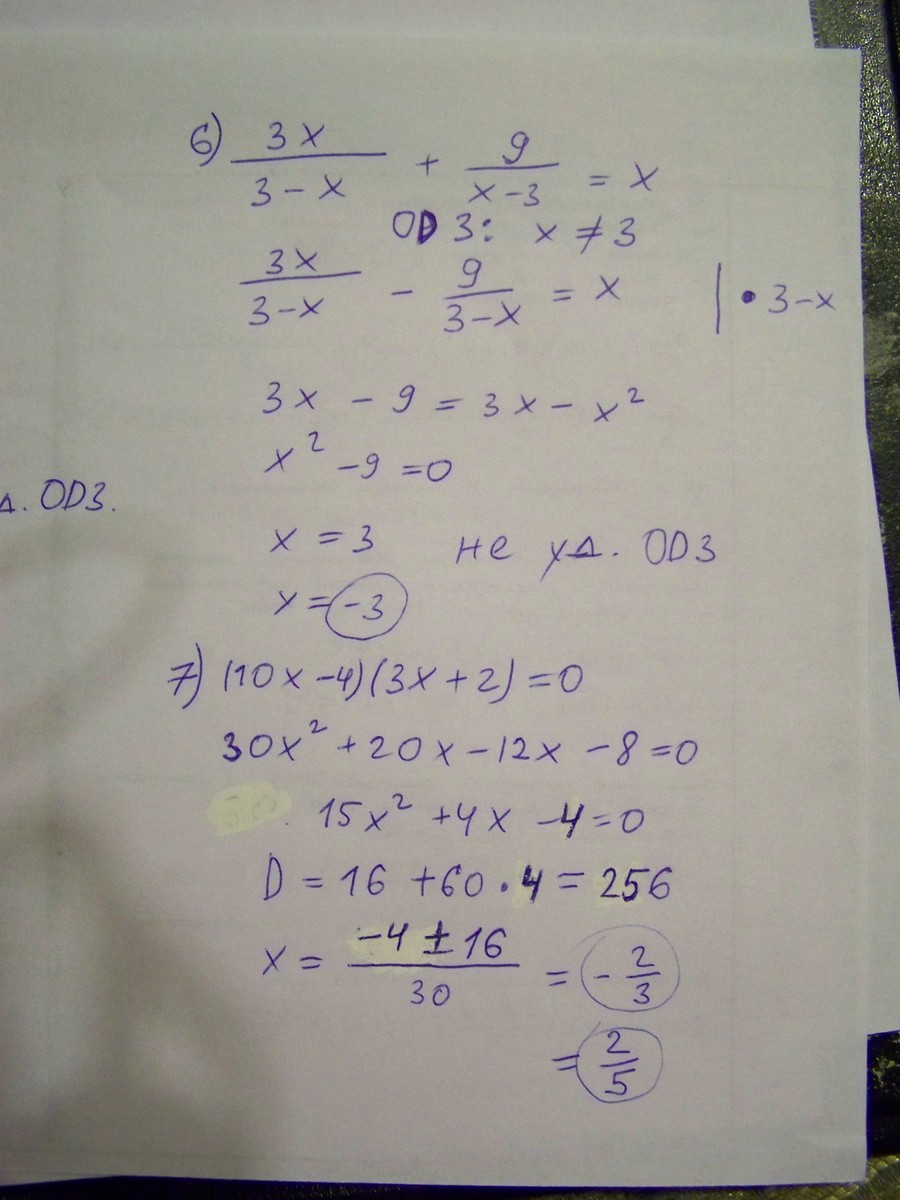 6) 3x/(3-x) + 9/(x-3) = x
OD3: x ≠ 3
3x/(3-x) - 9/(3-x) = x | • 3-x
3x - 9 = 3x - x²
x² -9 =0
д. OD3.
x = 3 не уд. OD3
x = -3
7) (10x -4)(3x+2)=0
30x² +20x -12x -8=0
15x² +4x -4=0
D = 16 +60•4 = 256
x = (-4 ± 16)/30 = -2/3
= 2/5